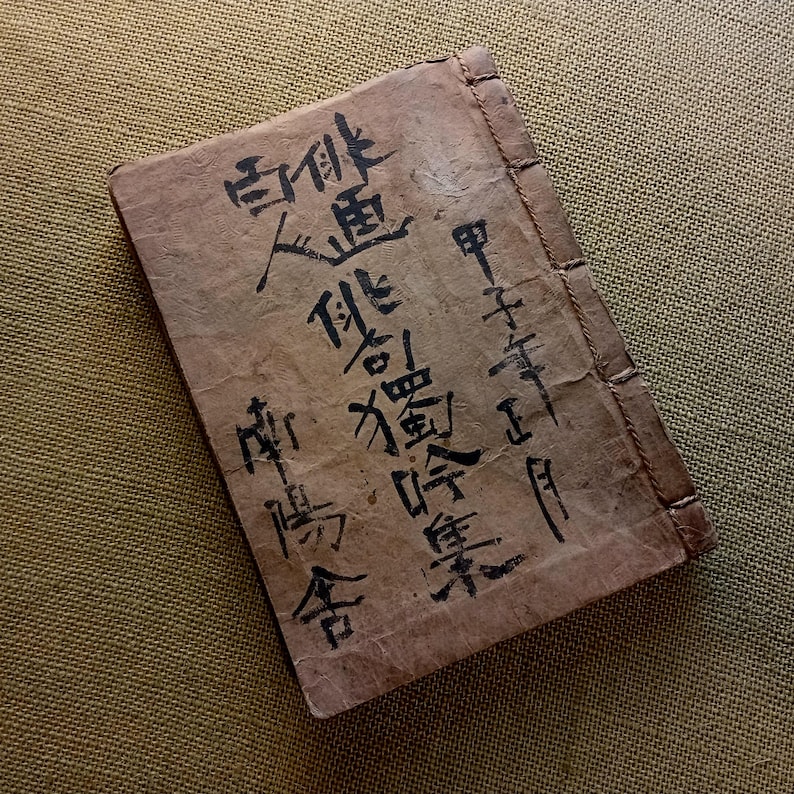 甲子年正月
俳画
百人
俳句獨吟集
南陽舎